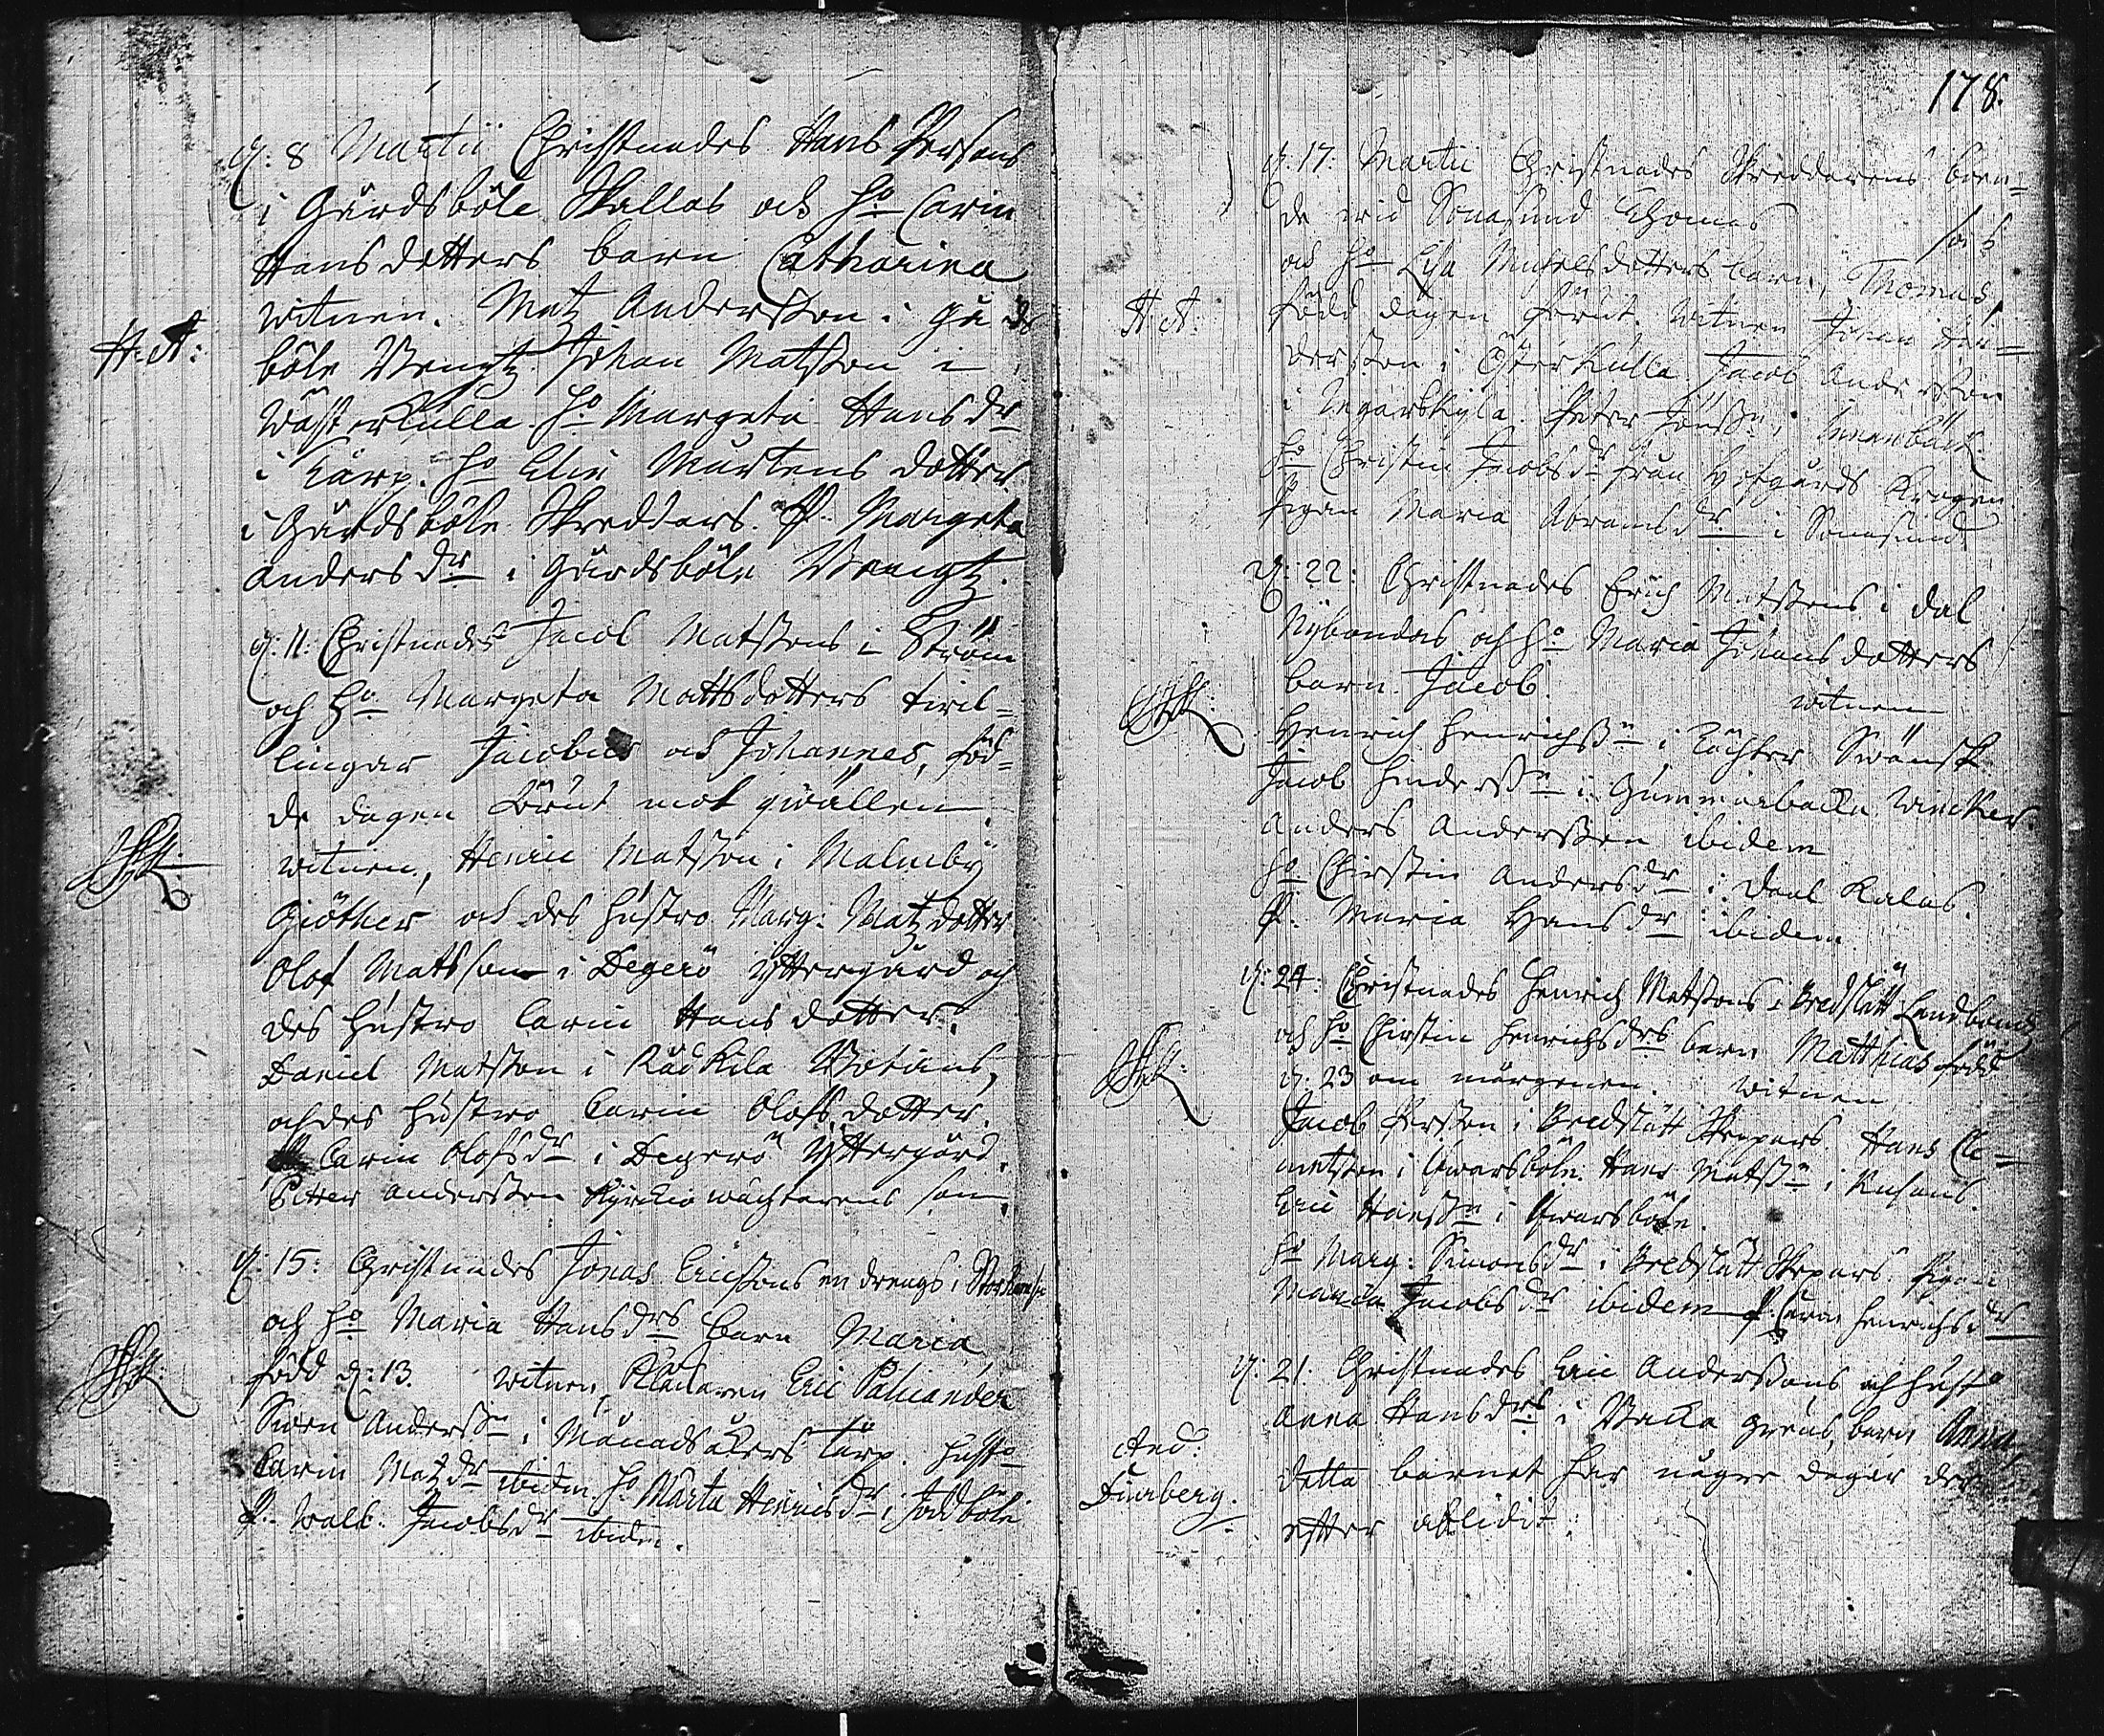 d. 8 Martii Christnades Hans Persons
i Gårdsböle Skallas och ho Carin
Hansdotters barn Catharina
witnen. Matz Andersson i Gårds
H. A:
böle Bengtz Johan Matsson i
Wästerkulla. ho Margeta Hans dr
i Tårp. ho Elin Mårtens dotter
i Gårdsböle Skreddars. P. Margeta
Anders dr i Gårdsböle Bengtz.
d. 11: Christnades Jacob Matssons i Ström
och ho Margeta Mattsdotters twil=
lingar Jacobus och Johannes, föd=
de dagen förut mot qwällen.
witnen, Henric Matsson i Malmby
Giöther och des hustro Marg: Matz dotter
Olof Matsson i Degerö Yttergård och
des hustro Carin Hans dotter.
Daniel Matsson i Rådkila
och des hustro Carin Olofs dotter.
Carin Olofs dr i Degerö Yttergård.
Petter Andersson Kyrckio wächterens son
d. 15: Christnades Jonas Ericssons en drengs i
och ho Maria Hansdrs barn Maria
född d. 13. witnen, Klåckaren Eric Paliander
Swen Anderss n i Månadsåkers tårp. husto
Carin Matz dr ibidem. ho Märta Henricsdr i Joddböle
P. Walb: Jacobs dr ibidem.
178.
d. 17. Martii Christnades Skreddarens boen=
de wid Sonasund Thomas
och ho Lisa Michelsdotters barn, Thomas,
H A:
född dagen förut. witnen Johan An=
dersson i Österkulla. Jacob Andersson
i Ingarskyla. Peter Jönss n i Innanbäck.
ho Christin Jacobs dr från Hofgårds Krogen
Pigan Maria Abrams dr i Sonasund.
d. 22: Christnades Erich Matssons i Dal
Nybondas och ho Maria Johansdotters
barn Jacob. witnen
Henrich Henrichss n i Täckter Swänsk
Jacob Hinderss n i Gummarbacka Wincker.
Anders Andersson ibidem
ho Christin Anders dr i Daal Kalas.
P. Maria Hans dr ibidem
d. 24. Christnades Henrich Matssons i Bredslätt Landbonds
och ho Christin Henrichsdrs barn Matthias född
d. 23 om morgonen. witnen
Jacob Persson i Bredslätt Skepars. Hans Cle=
metsson i Qwarsböle. Hans Matss n i
Eric Hanss n i Qwarsböle.
ho Marg: Simons dr i Bredslätt Skepars. Pigan
Maria Jacobs dr ibidem P. Carin Henrichs dr
d. 21. Christnades Eric Anderssons och husto
Anna Hansdrs i Backa gräns, barn Anna,
And:
detta barnet har några dagar der
Fierberg.
efter aflidit.